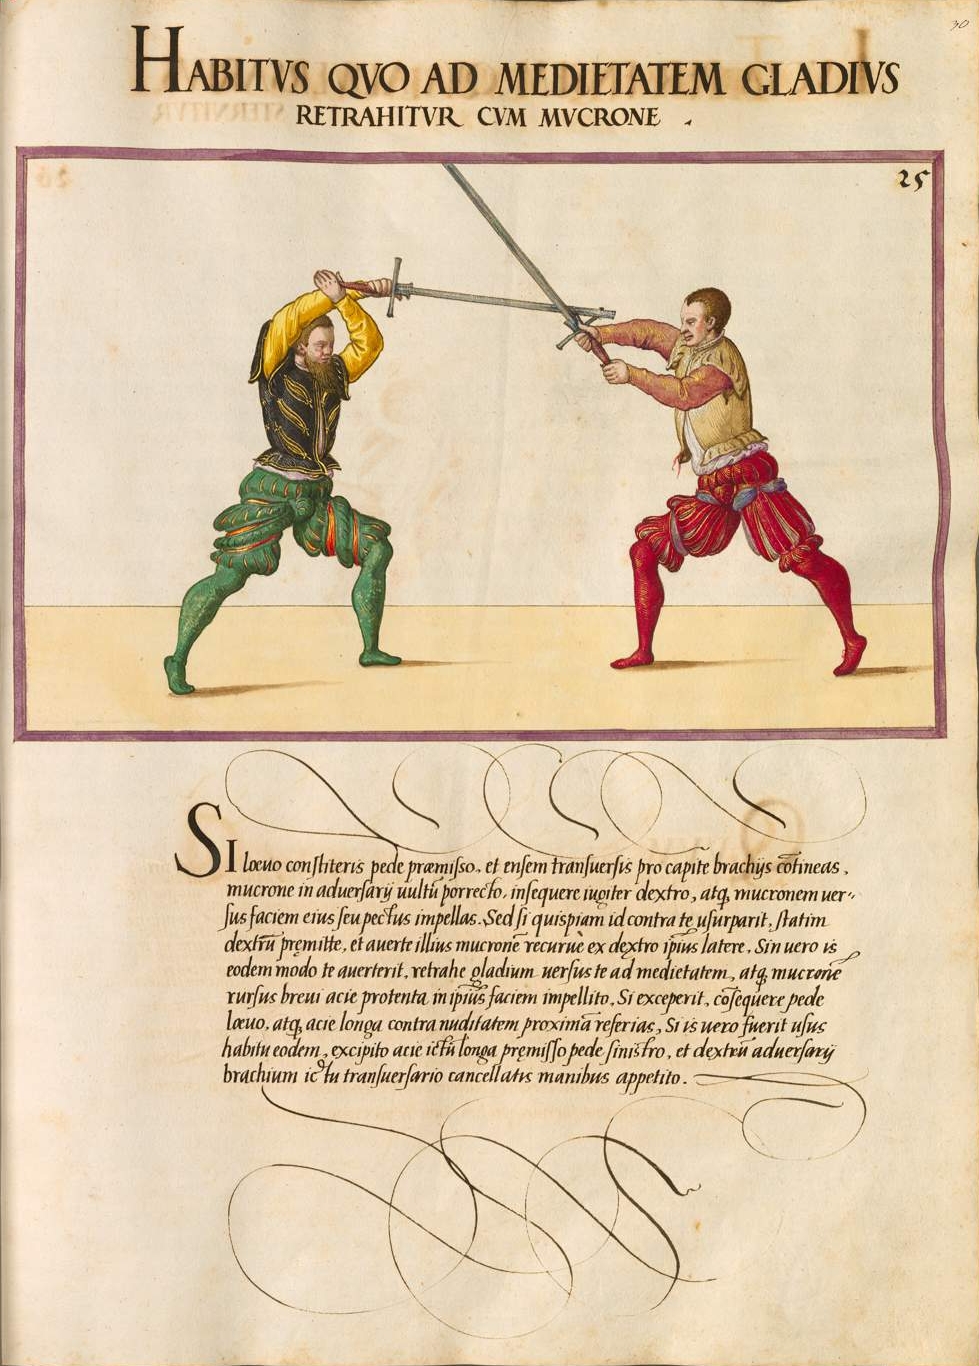 30
HABITVS QVO AD MEDIETATEM GLADIVS
RETRAHITVR CVM MVCRONE .
25
SI lœuo constiteris pede præmisso, et ensem transuersis pro capite brachijs cōtineas,
mucrone in aduersarij uultū porrecto, insequere iugiter dextro, atq, mucronem uer-
sus faciem eius seu pectus impellas. Sed si quispiam id contra te usurparit, statim
dextrū pręmitte, et auerte illius mucronē recuruè ex dextro ipius latere. Sin uero is
eodem modo te auerterit, retrahe gladium uersus te ad medietatem, atq, mucronē
rursus breui acie protenta in ipius faciem impellito. Si exceperit, cōsequere pede
lœuo, atq, acie longa contra nuditatem proximā referias. Si is uero fuerit usus
habitu eodem, excipito acie ictū longa pręmisso pede sinistro, et dextrū aduersarij
brachium ictu transuersario cancellatis manibus appetito.